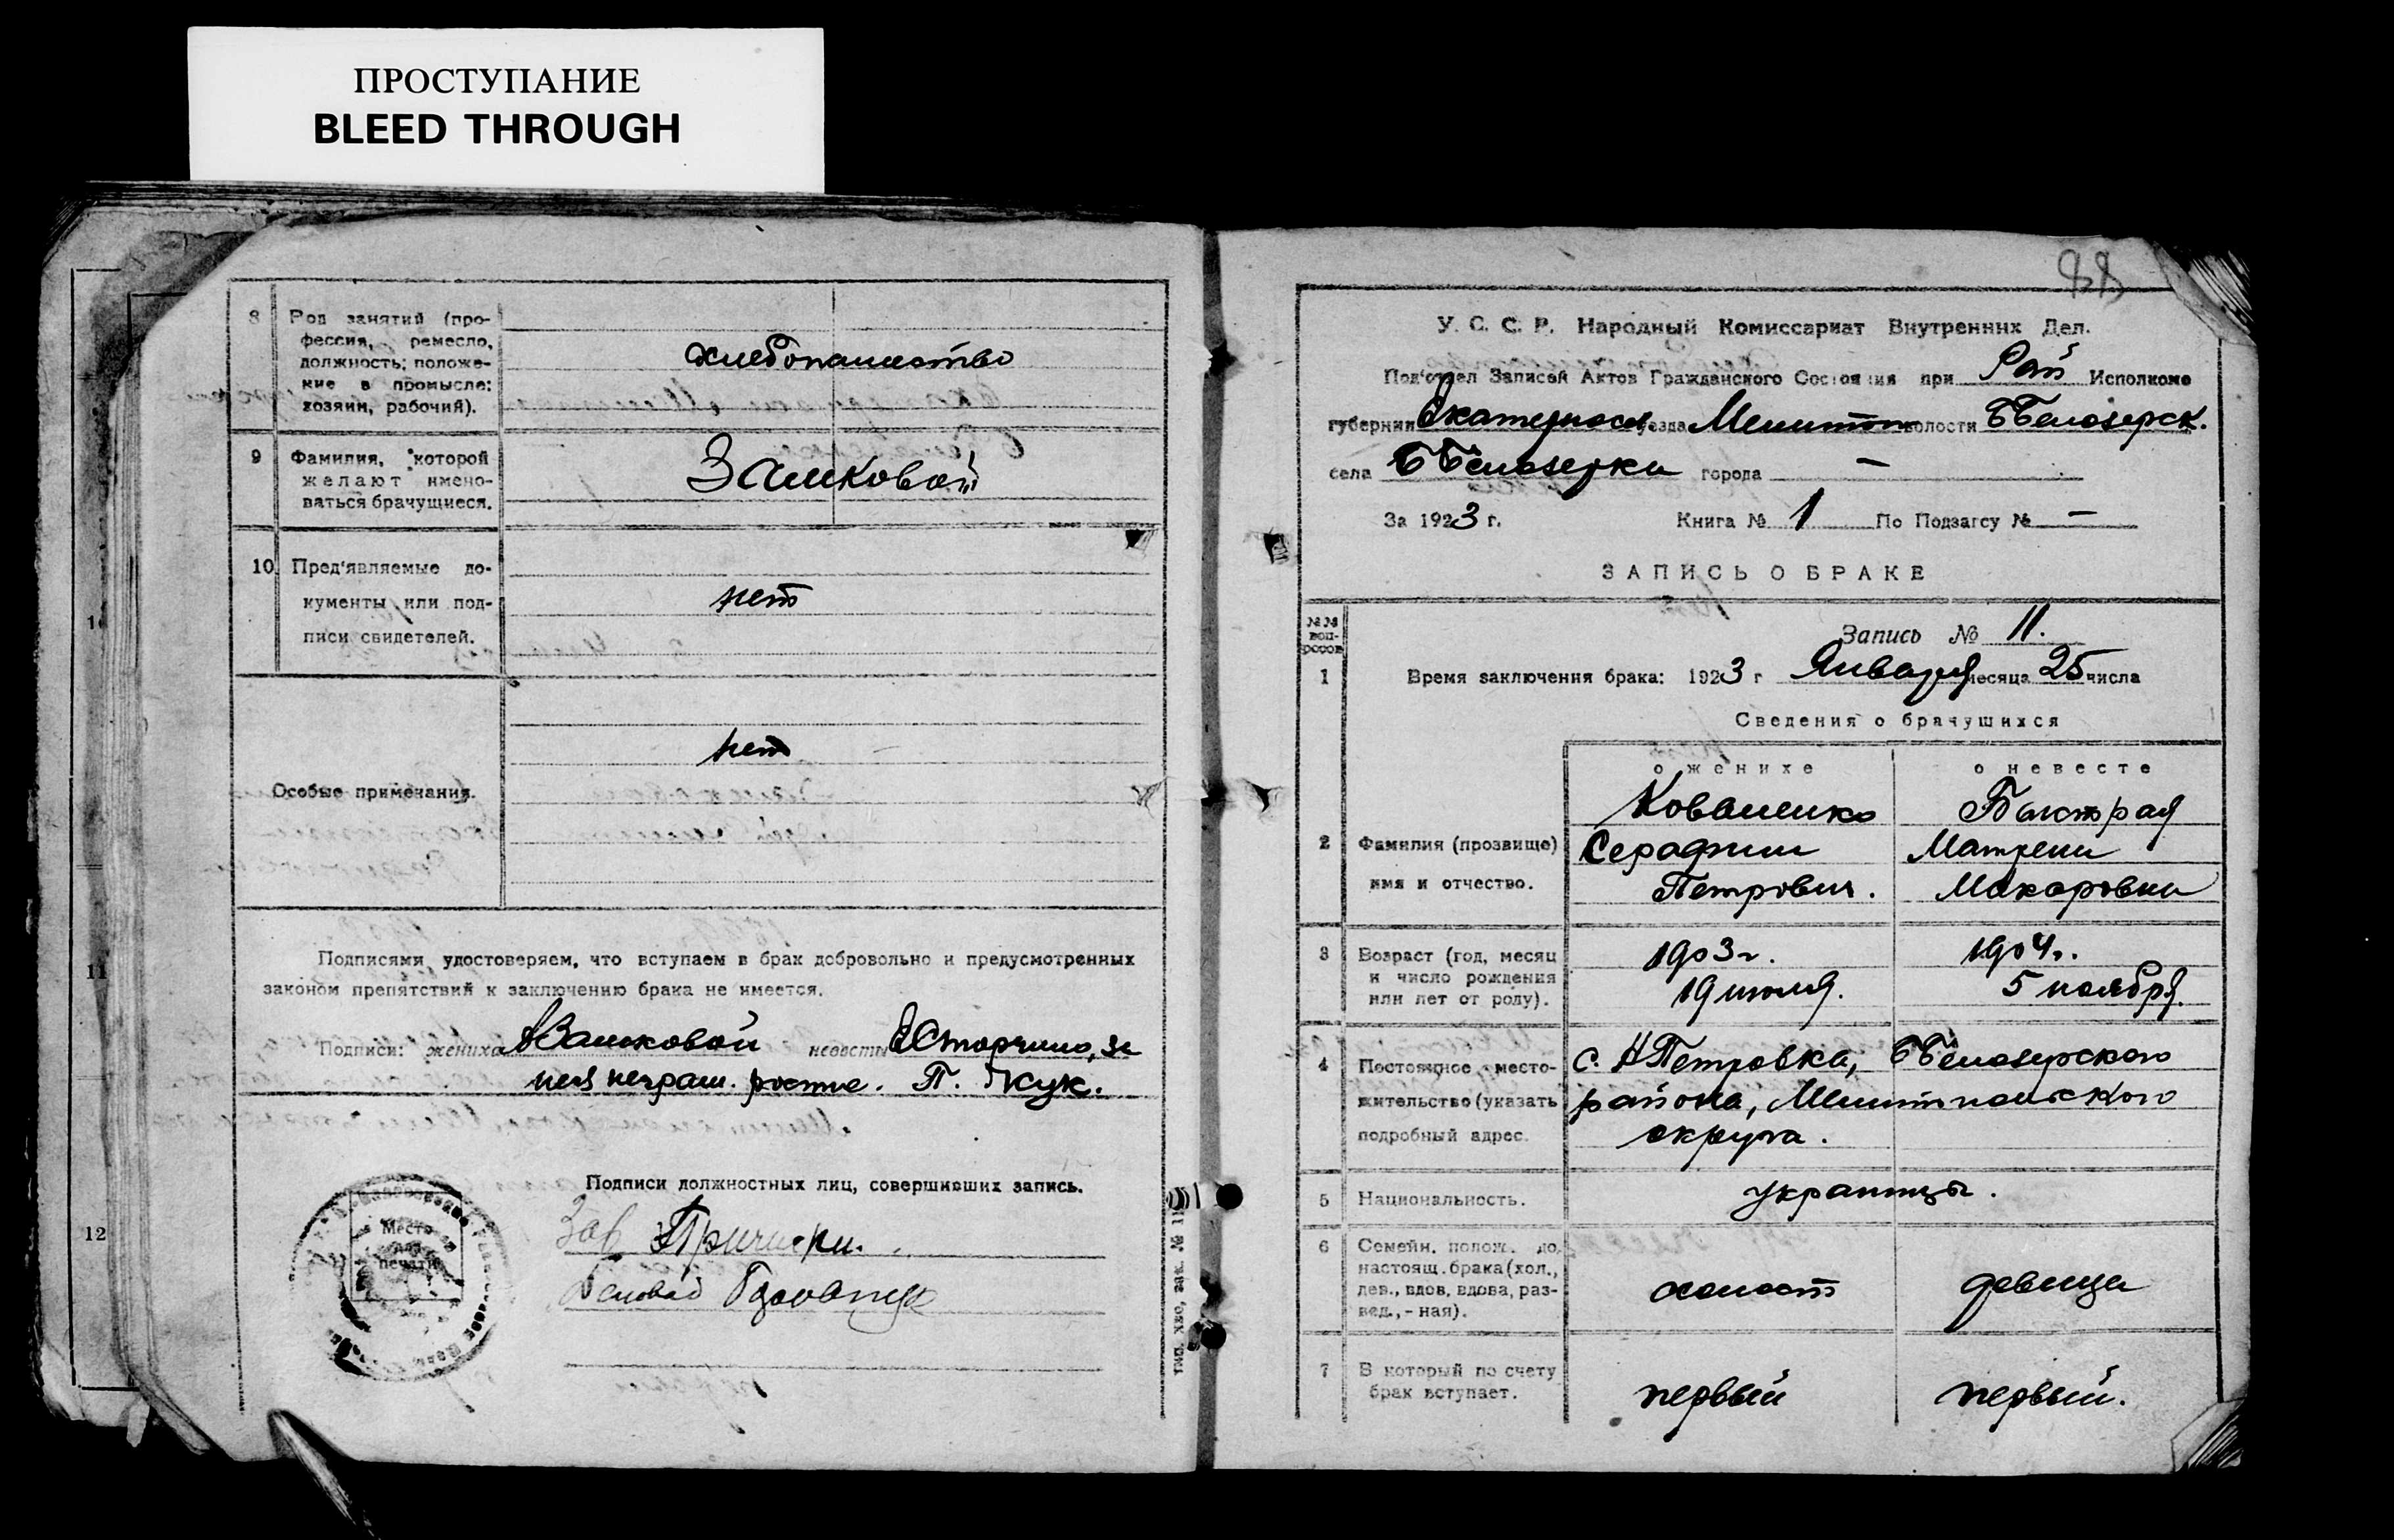 ПРОСТУПАНИЕ
BLEED THROUGH
8 Род занятий (про-
фессия, ремесло,
должность; положе-
ние в промысле:
хозяин, рабочий).
хлебопашество
9 Фамилия, которой
желают имено-
ваться брачущиеся.
Замковой
10 Пред'являемые до-
кументы или под-
писи свидетелей.
нет
Особые примечания.
нет
Подписями удостоверяем, что вступаем в брак добровольно и предусмотренных
законом препятствий к заключению брака не имеется.
Подписи: жениха Замковой невесты
неё неграм. П. Жук.
Подписи должностных лиц, совершивших запись.
Зав
Место
для
печати
11
12
88
У. С. С. Р. Народный Комиссариат Внутренних Дел.
Под'отдел Записей Актов Гражданского Состояния при Рай Исполкоме
губернии Екатеринос уезда Мелитоп волости ББелозерск.
села ББелозерки города —
За 1923 г. Книга № 1 По Подзагсу № —
ЗАПИСЬ О БРАКЕ
№№ воп-росов
Запись № 11.
1 Время заключения брака: 1923 г Января месяца 25 числа
Сведения о брачушихся
о женихе о невесте
Коваленко Быстрая
2 Фамилия (прозвище) Серафим Матрена
имя и отчество. Петрович. Макаровна
3 Возраст (год, месяц 1903г. 1904г.
и число рождения 19 июля. 5 ноября.
или лет от роду).
4 Постоянное место- с. НПетровка, ББелозерского
жительство (указать района, Мелитопольского
подробный адрес. округа.
5 Национальность. украинцы.
6 Семейн. полож. до
настоящ. брака (хол., холост девица
дев., вдов, вдова, раз-
вед., - ная).
7 В который по счету первый первый.
брак вступает.